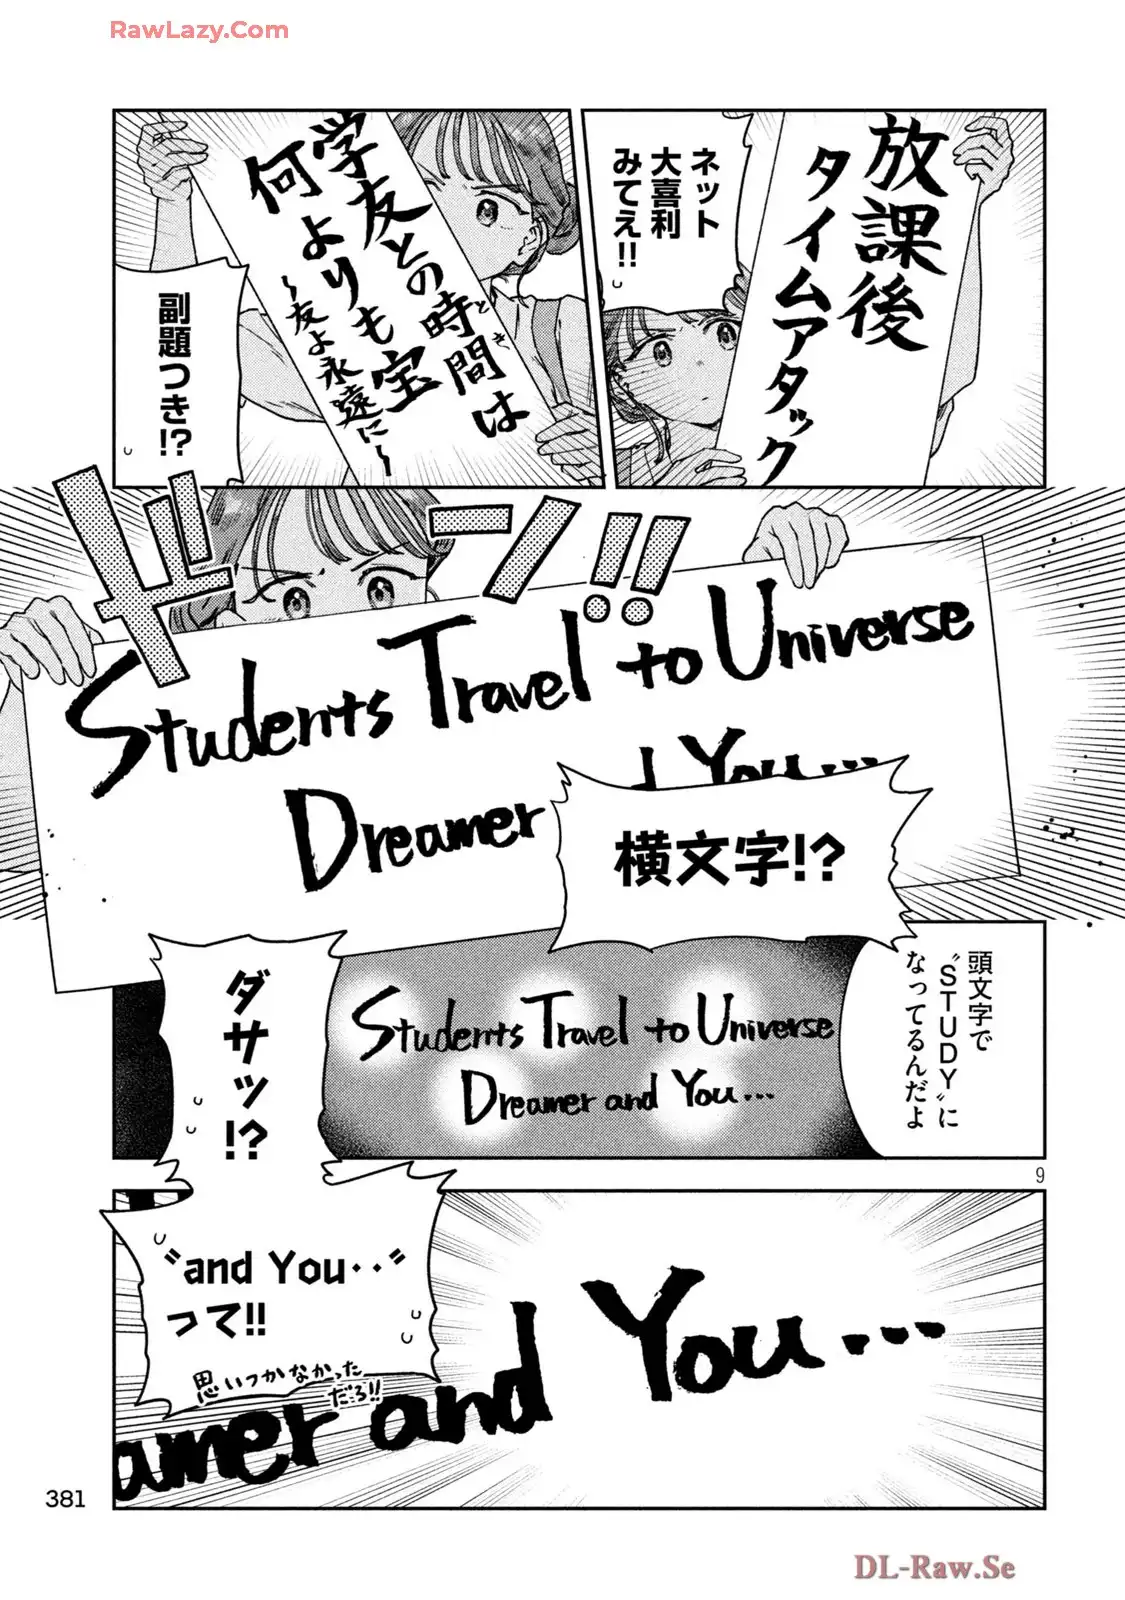 RawLazy.Com
放課後
タイムアタック
ネット
大喜利
みてえ!!
学友との時間は
とき
何よりも宝
～友よ永遠に～
副題つき!?
ドーン!!
Students Travel to Universe
Dreamer and You...
横文字!?
頭文字で
〝STUDY〟に
なってるんだよ
Students Travel to Universe
Dreamer and You...
ダサッ!?
9
〝and You‥〟
って!!
思いつかなかった
だろ!!
amer and You...
381
DL-Raw.Se